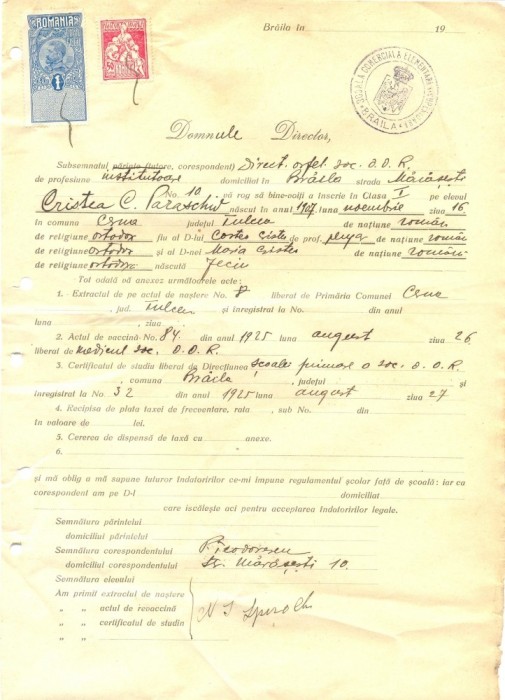 ROMANIA
1
Brăila în 19
ȘCOALA COMERCIALĂ ELEMENTARĂ
BRĂILA
Domnule Director,
Subsemnatul părinte (tutore, corespondent) Direct. orfel. soc. O. O. R.
de profesiune institutoare domiciliat în Brăila strada Mărășești
No. 10 vă rog să bine-voiți a înscrie în Clasa I pe elevul
Cristea C. Paraschiv născut în anul 1907 luna noembrie ziua 16
în comuna Cerna județul Tulcea de națiune român
de religiune ortodox fiu al D-lui Costea Cristea de prof. plugar de națiune român
de religiune ortodox și al D-nei Maria Cristea de națiune română
de religiune ortodoxă născută Jeciu
Tot odată vă anexez următoarele acte:
1. Extractul de pe actul de naștere No. 8 liberat de Primăria Comunei Cerna
, jud. Tulcea și înregistrat la No. din anul
luna , ziua
2. Actul de vaccină No. 84 din anul 1925 luna august ziua 26
liberat de medicul soc. O. O. R.
3. Certificatul de studiu liberat de Direcțiunea școalei primare a soc. O. O. R.
, comuna Brăila , județul și
înregistrat la No. 32 din anul 1925 luna august ziua 27
4. Recipisa de plata taxei de frecventare, rata , sub No. din
în valoare de lei.
5. Cererea de dispensă de taxă cu anexe.
6.
și mă oblig a mă supune tuturor îndatoririlor ce-mi impune regulamentul școlar față de școală: iar ca
corespondent am pe D-l domiciliat
care iscălește aci pentru acceptarea îndatoririlor legale.
Semnătura părintelui
domiciliul părintelui
Semnătura corespondentului P. Teodorescu
domiciliul corespondentului Str. Mărășești 10.
Semnătura elevului
Am primit extractul de naștere
„ „ actul de revaccină
„ „ certificatul de studiu
„ „